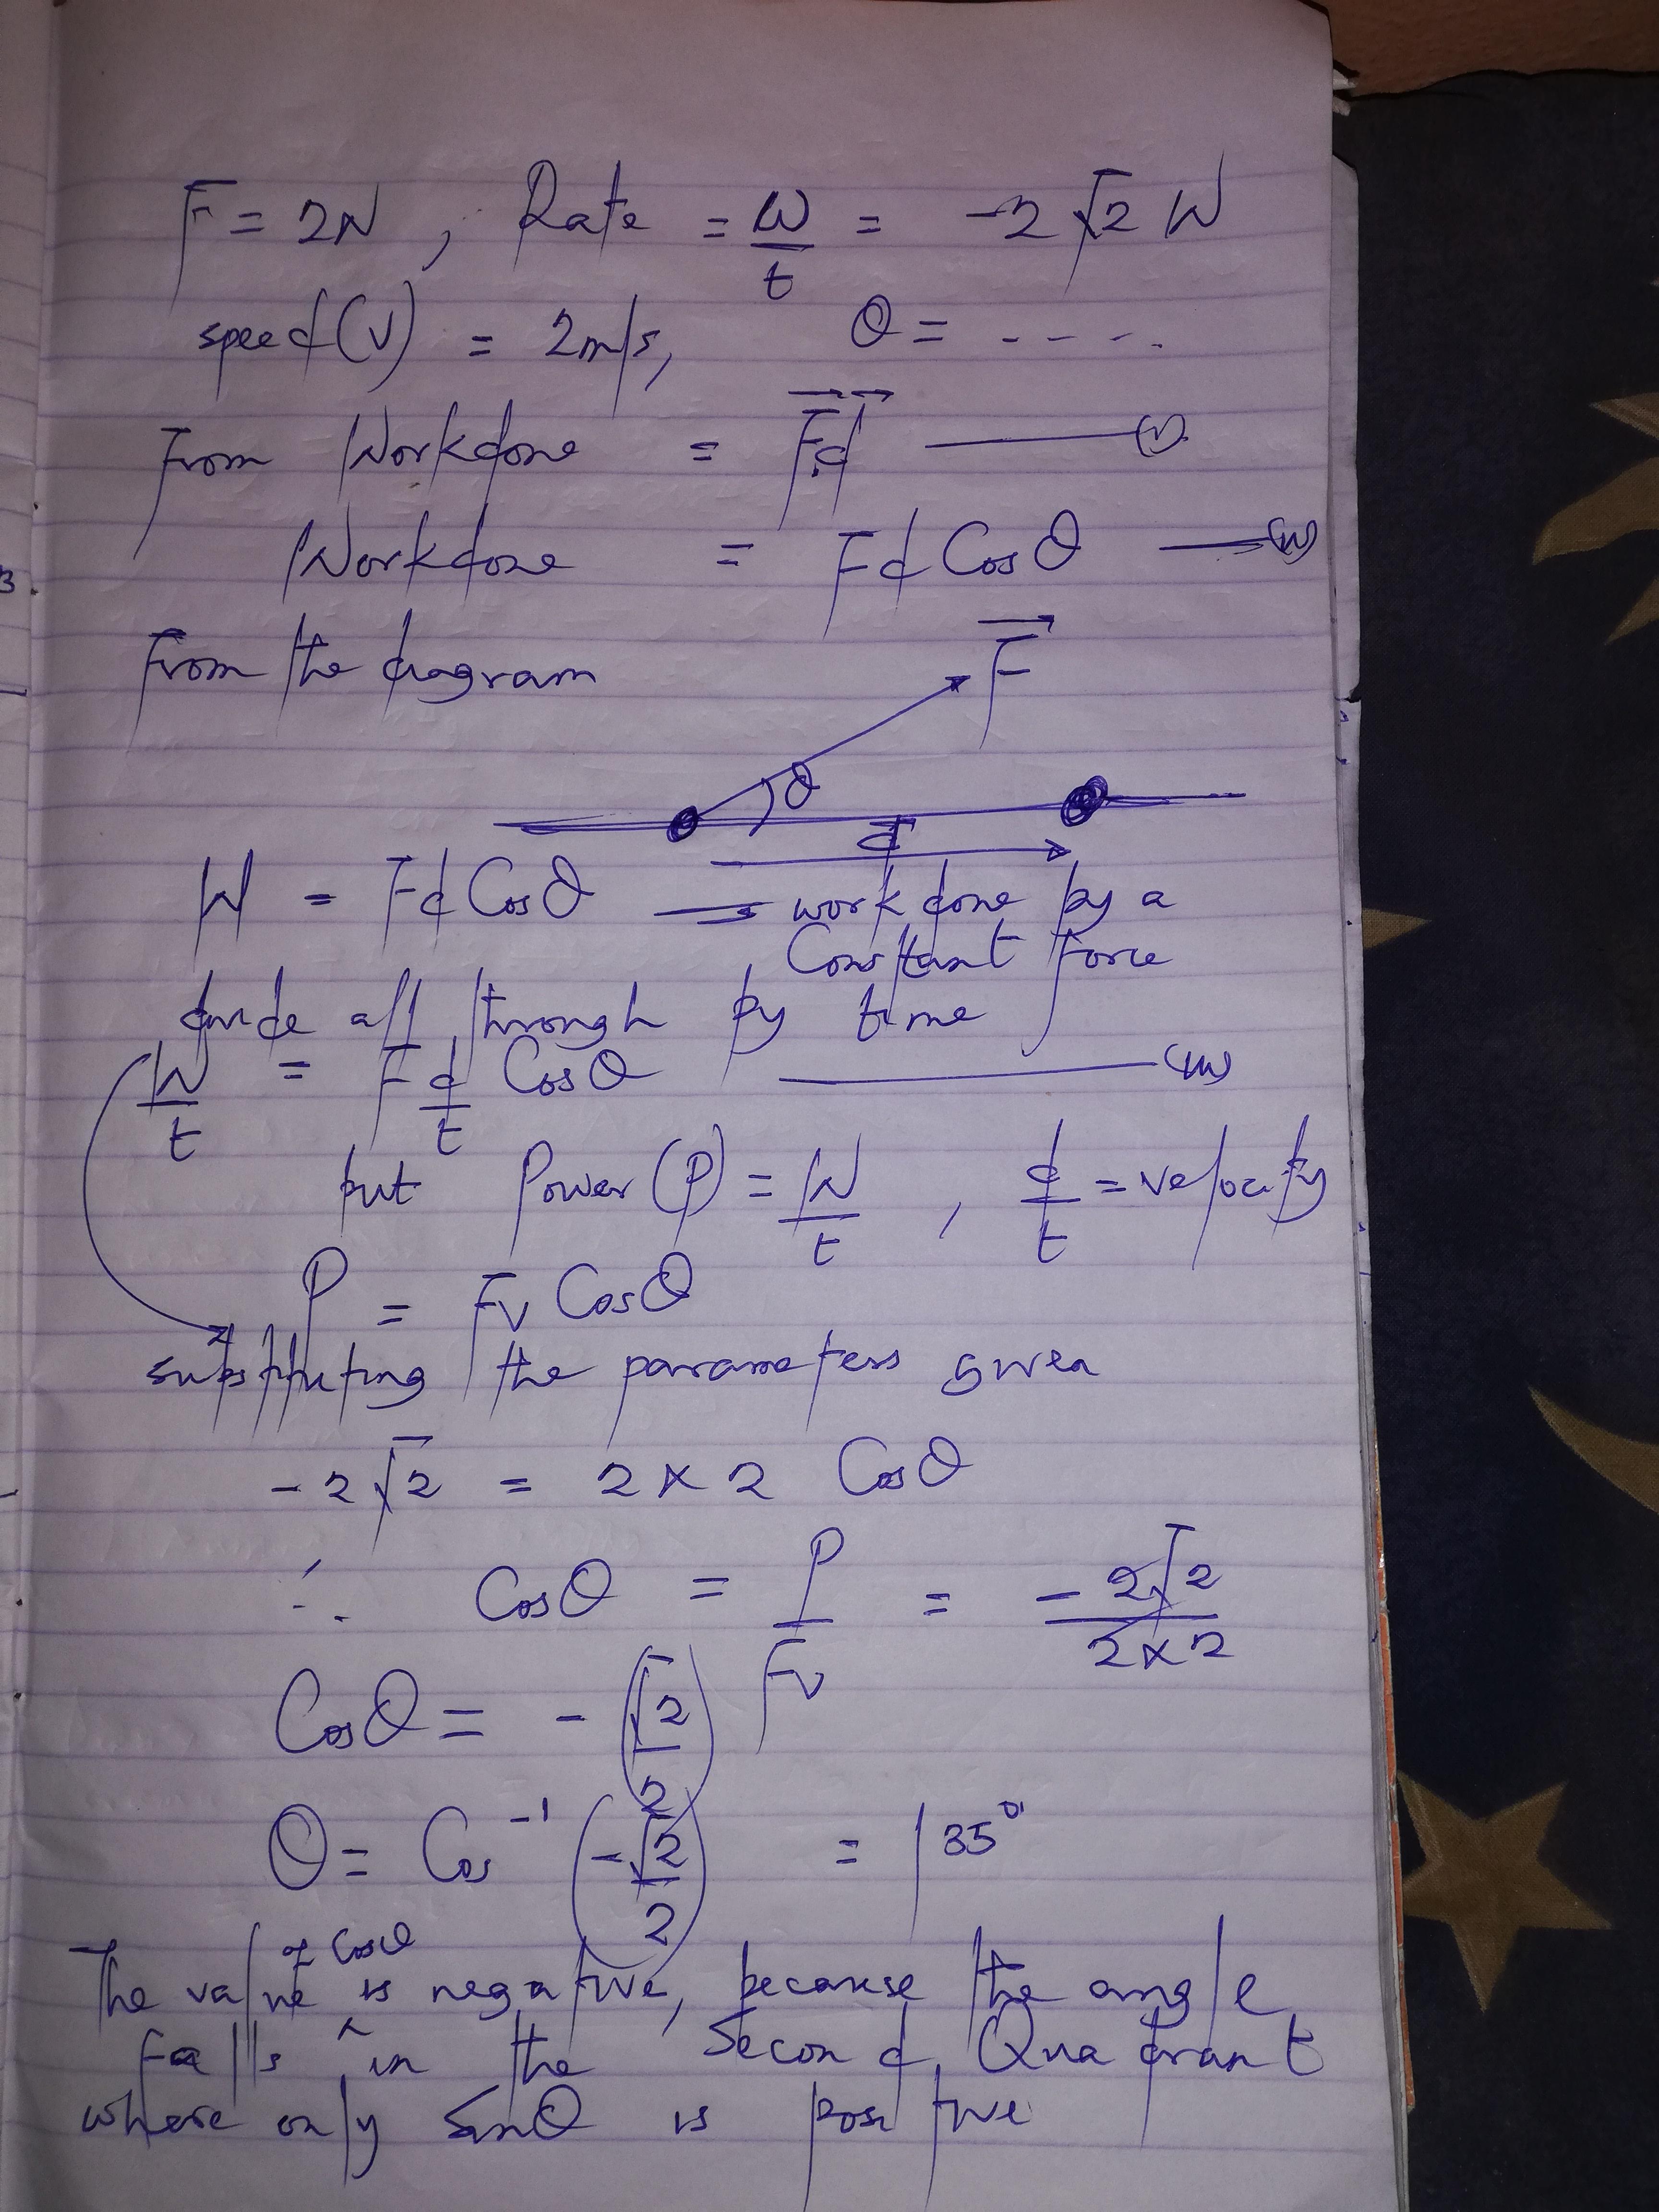 F = 2N , Rate = W/t = -2√2 W
speed(v) = 2m/s, θ = - - - -
From Workdone = F⃗.d⃗ —— (i)
Workdone = Fd Cosθ —— (ii)
From the diagram
F⃗
θ
d
W = Fd Cosθ → work done by a
Constant force
divide all through by time
W/t = F d/t Cosθ —— (iii)
but Power (P) = W/t , d/t = velocity
P = Fv Cosθ
substituting the parameters given
-2√2 = 2 × 2 Cosθ
∴ Cosθ = P/Fv = -2√2/2×2
Cosθ = -(√2/2)
θ = Cos⁻¹(-√2/2) = 135°
The value of Cosθ is negative, because the angle
falls in the Second Quadrant
where only Sinθ is positive